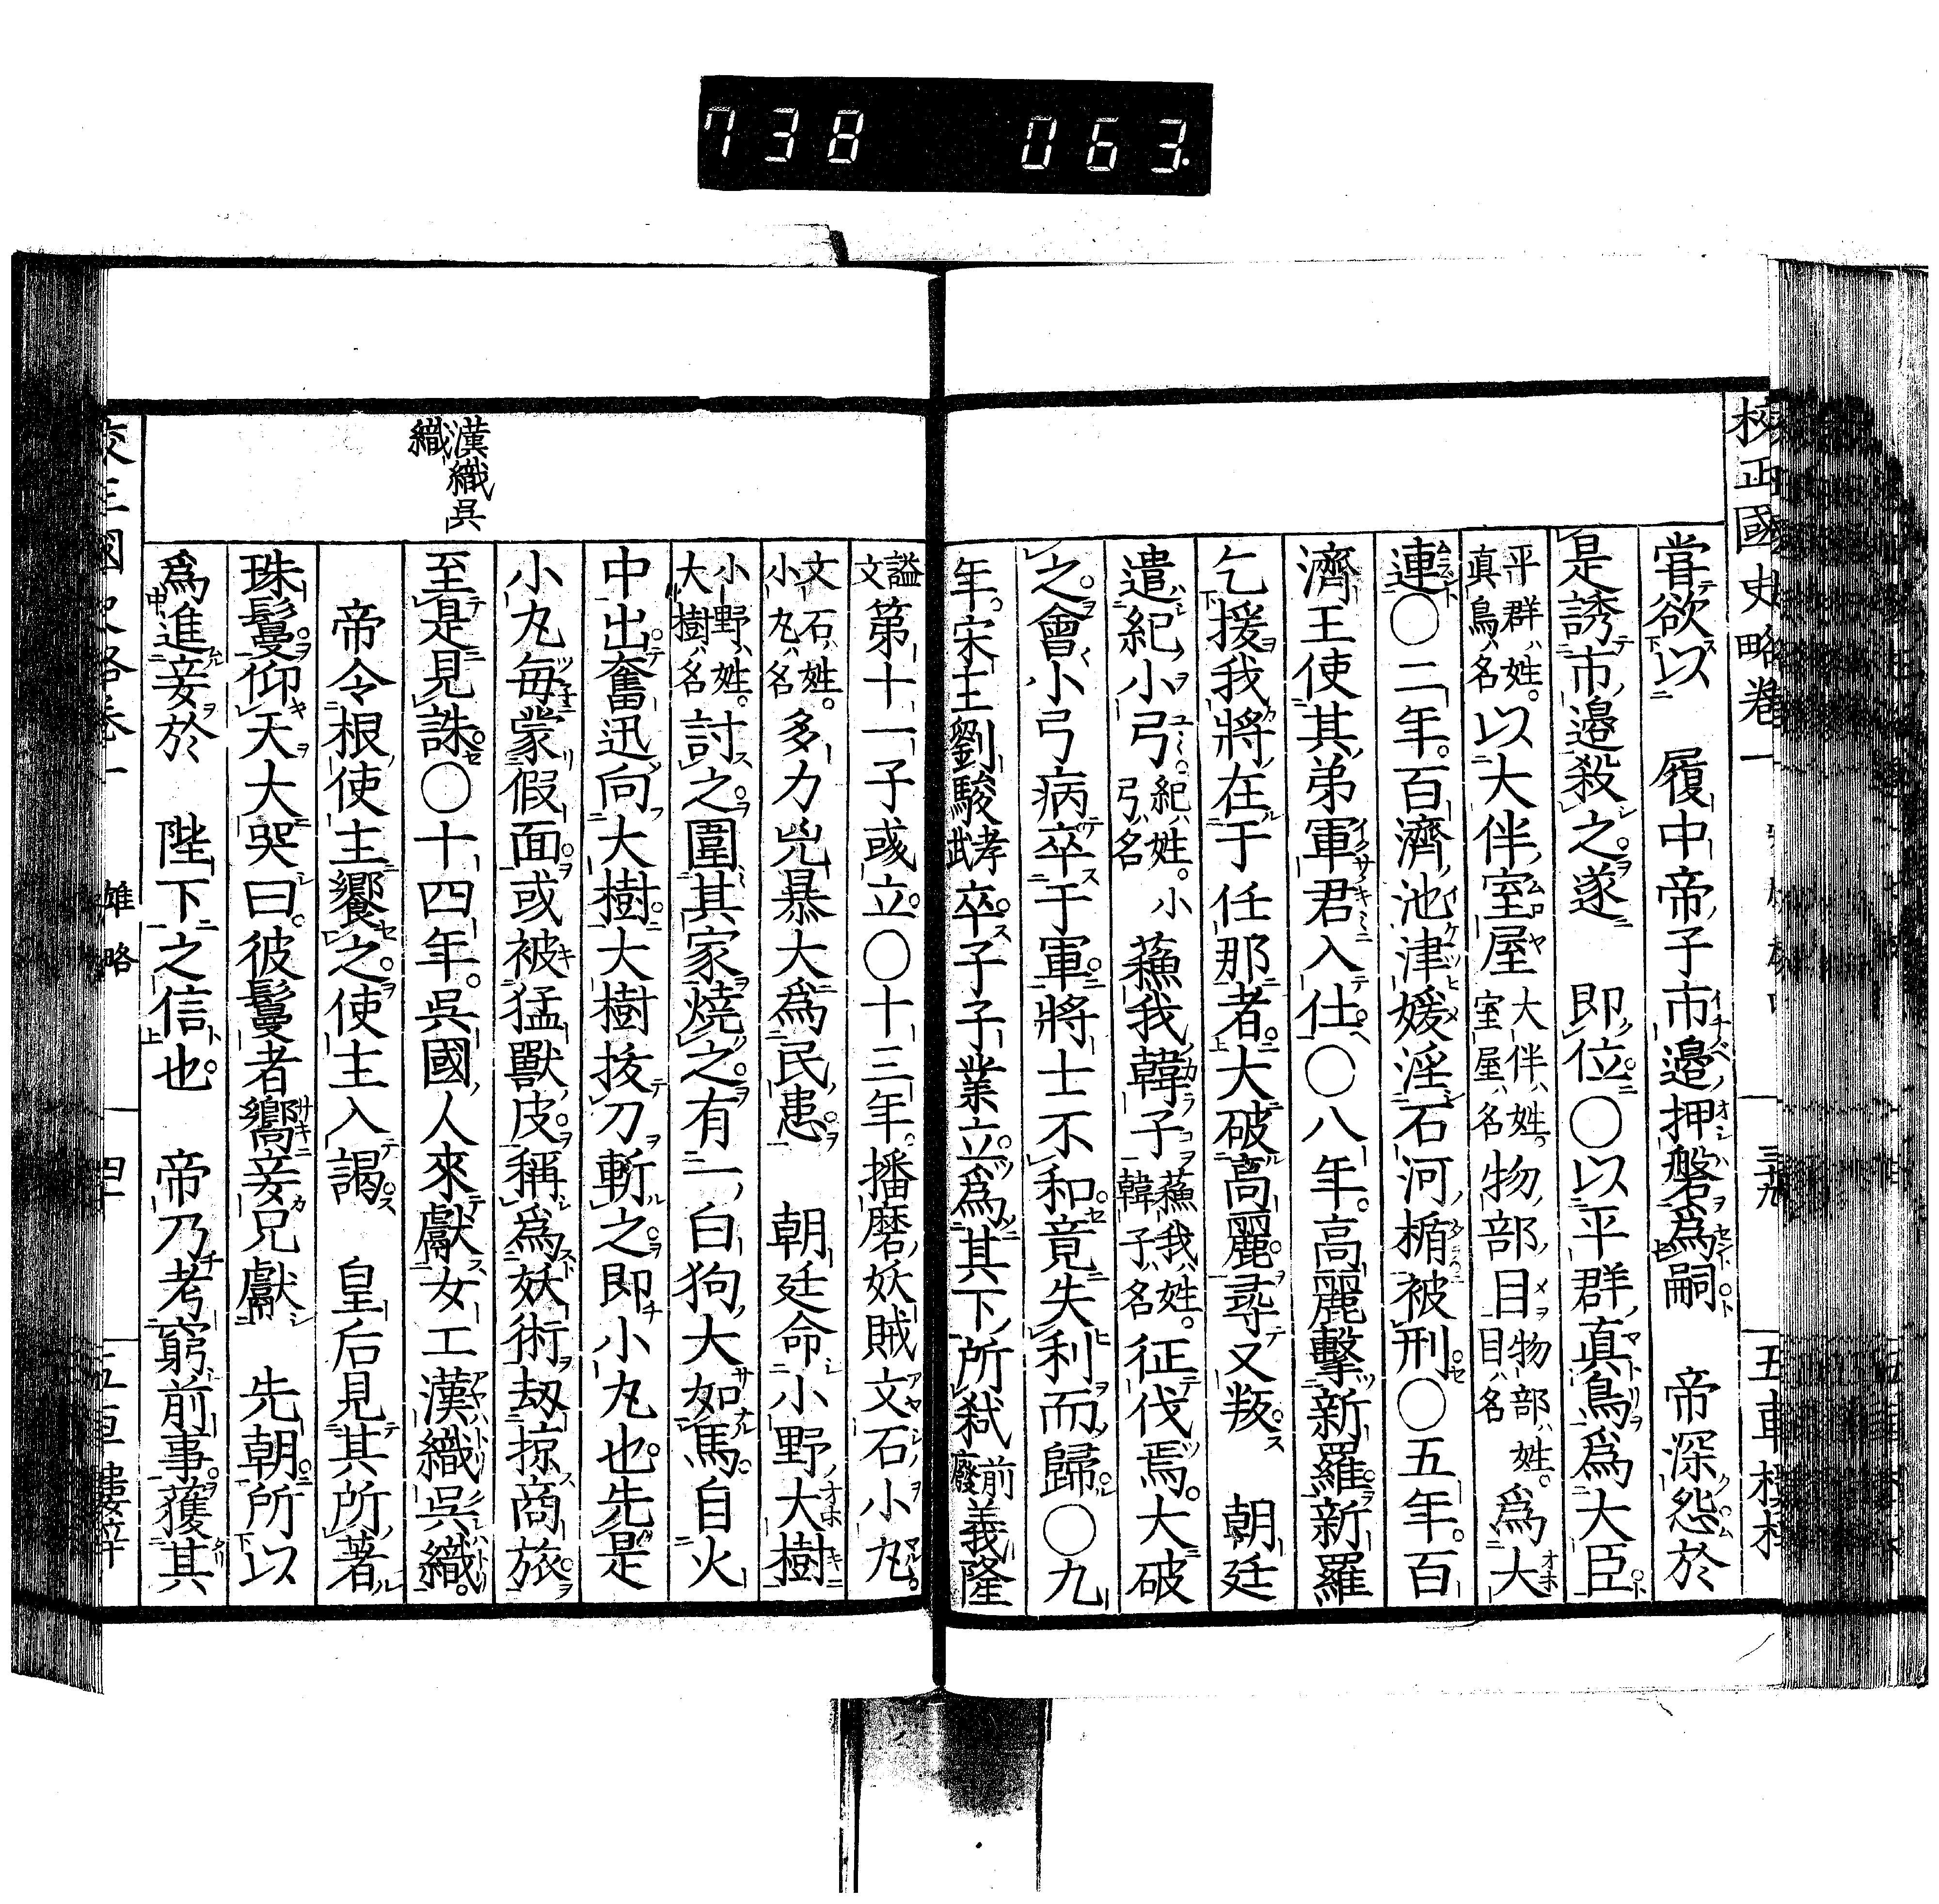 738 063
校正國史略卷一 三九 五車樓梓
嘗欲以 履中帝子市邉押磐爲嗣 帝深怨於
是誘市邉殺之遂 即位〇以平群真鳥爲大臣
平群ハ姓。真鳥ハ名 以大伴室屋 大伴ハ姓。室屋ハ名 物部目 物部ハ姓。目ハ名 爲大
連〇二年。百濟池津媛淫石河楯被刑〇五年。百
濟王使其弟軍君入仕〇八年。高麗擊新羅新羅
乞援我將在于任那者大破高麗尋又叛 朝廷
遣紀小弓 紀ハ姓。小弓ハ名 蘓我韓子 蘓我ハ姓。韓子ハ名 征伐焉。大破
之會小弓病卒于軍將士不和竟失利而歸〇九
年。宋主劉駿 孝武 卒子子業立爲其下所弑 前廢 義隆
諡文 第十一子彧立〇十三年。播磨妖賊文石小丸
文石ハ姓。小丸ハ名 多力兇暴大爲民患 朝廷命小野大樹
小野ハ姓。大樹ハ名 討之圍其家燒之有一白狗大如馬自火
中出奮迅向大樹大樹拔刀斬之即小丸也先是
小丸毎蒙假面或被猛獸皮稱爲妖術刼掠商旅
至是見誅〇十四年。呉國人來獻女工漢織呉織。
漢織呉織
帝令根使主饗之使主入謁 皇后見其所著
珠鬘仰天大哭曰彼鬘者嚮妾兄獻 先朝所以
爲進妾於 陛下之信也 帝乃考窮前事獲其
雄略 四十